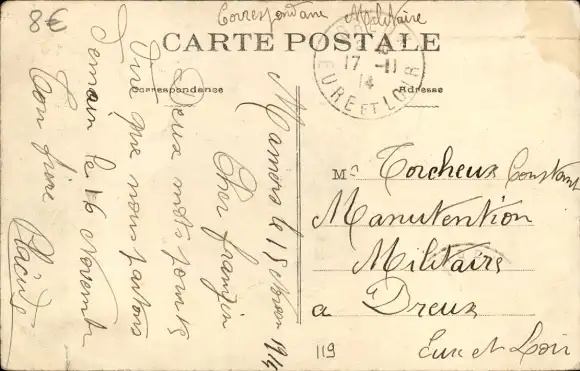 8€
Correspondance Militaire
CARTE POSTALE
Correspondance
Adresse
17-11
14
EURE ET LOIR
Mamers le 15 Novem 1914
Cher frangin
Deux mots pour te
dire que nous partons
demain le 16 Novembre
Ton frère
Placide
Mr Torcheux Constant
Manutention
Militaire
a Dreux
Eure et Loir
119